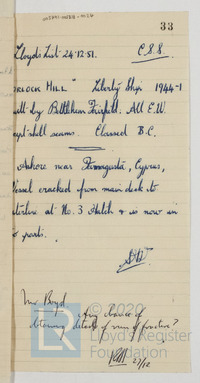 33
Lloyds List 24·12·51. C.S.S.
"ORLOCK HILL" Liberty Ship 1944-1
built by Bethlehem Fairfield. All E.W.
except shell seams. Classed B.C.
Ashore near Famagusta, Cyprus,
Vessel cracked from main deck to
waterline at No. 3 Hatch & is now in
two parts.
Mr Boyd
Any chance of
obtaining details of run of fracture?
27/12
© 2020
LR
Lloyd's Register
Foundation